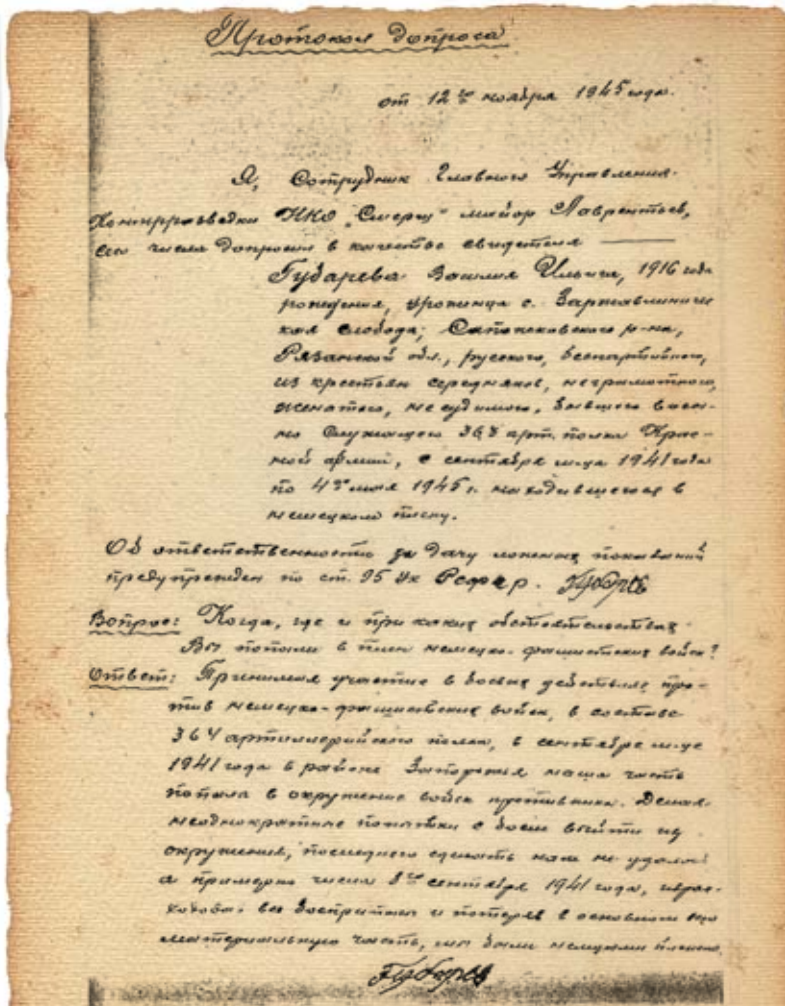 Протокол допроса
от 12го ноября 1945 года.
Я, Сотрудник Главного Управления
Контрразведки НКО "Смерш" майор Лаврентьев,
сего числа допросил в качестве свидетеля
Губарева Василия Ильича, 1916 года
рождения, уроженца с.
слобода, р-на,
Рязанской обл., русского, беспартийного,
из крестьян середняков, неграмотного,
женатого, не судимого, бывшего воен-
но служащего 364 арт. полка Крас-
ной армии, с сентября м-ца 1941 года
по 4е мая 1945 г. находившегося в
немецком плену.
Об ответственности за дачу ложных показаний
предупрежден по ст. 95 Ук Рсфср. Губарев
Вопрос: Когда, где и при каких обстоятельствах
Вы попали в плен немецко-фашистских войск?
Ответ: Принимая участие в боевых действиях про-
тив немецко-фашистских войск, в составе
364 артиллерийского полка, в сентябре м-це
1941 года в районе Запорожья наша часть
попала в окружение войск противника. Делая
неоднократные попытки с боем выйти из
окружения, последнего сделать нам не удалось
а примерно числа 8го сентября 1941 года, израс-
ходовав все боеприпасы и потеряв в основном всю
материальную часть, мы были немцами пленены.
Губарев